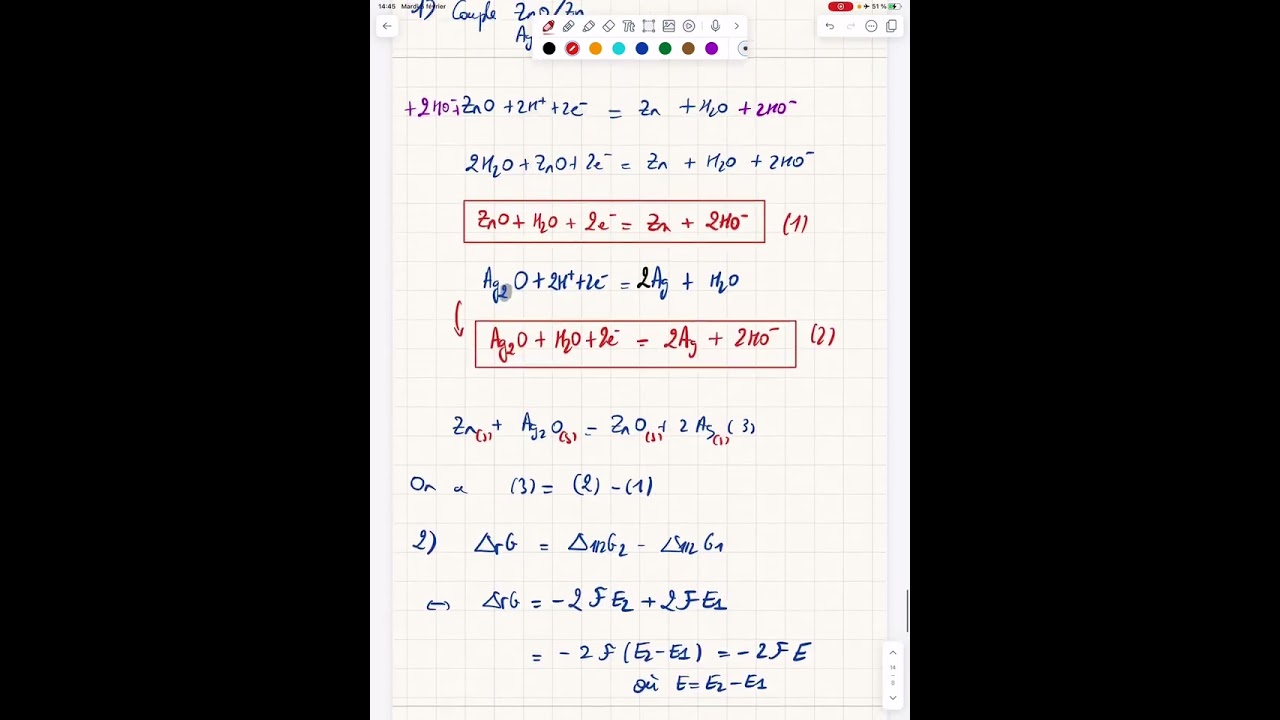 14:45 Mardi 6 février
51 %
1) Couple ZnO/Zn
Ag
+2HO⁻+ZnO + 2H⁺ + 2e⁻ = Zn + H₂O + 2HO⁻
2H₂O + ZnO + 2e⁻ = Zn + H₂O + 2HO⁻
ZnO + H₂O + 2e⁻ = Zn + 2HO⁻ (1)
Ag₂O + 2H⁺ + 2e⁻ = 2Ag + H₂O
Ag₂O + H₂O + 2e⁻ = 2Ag + 2HO⁻ (2)
Zn(s) + Ag₂O(s) = ZnO(s) + 2Ag(s) (3)
On a (3) = (2) - (1)
2) ΔrG = Δ1/2G₂ - Δ1/2G₁
⟺ ΔrG = -2FE₂ + 2FE₁
= -2F(E₂-E₁) = -2FE
où E = E₂-E₁